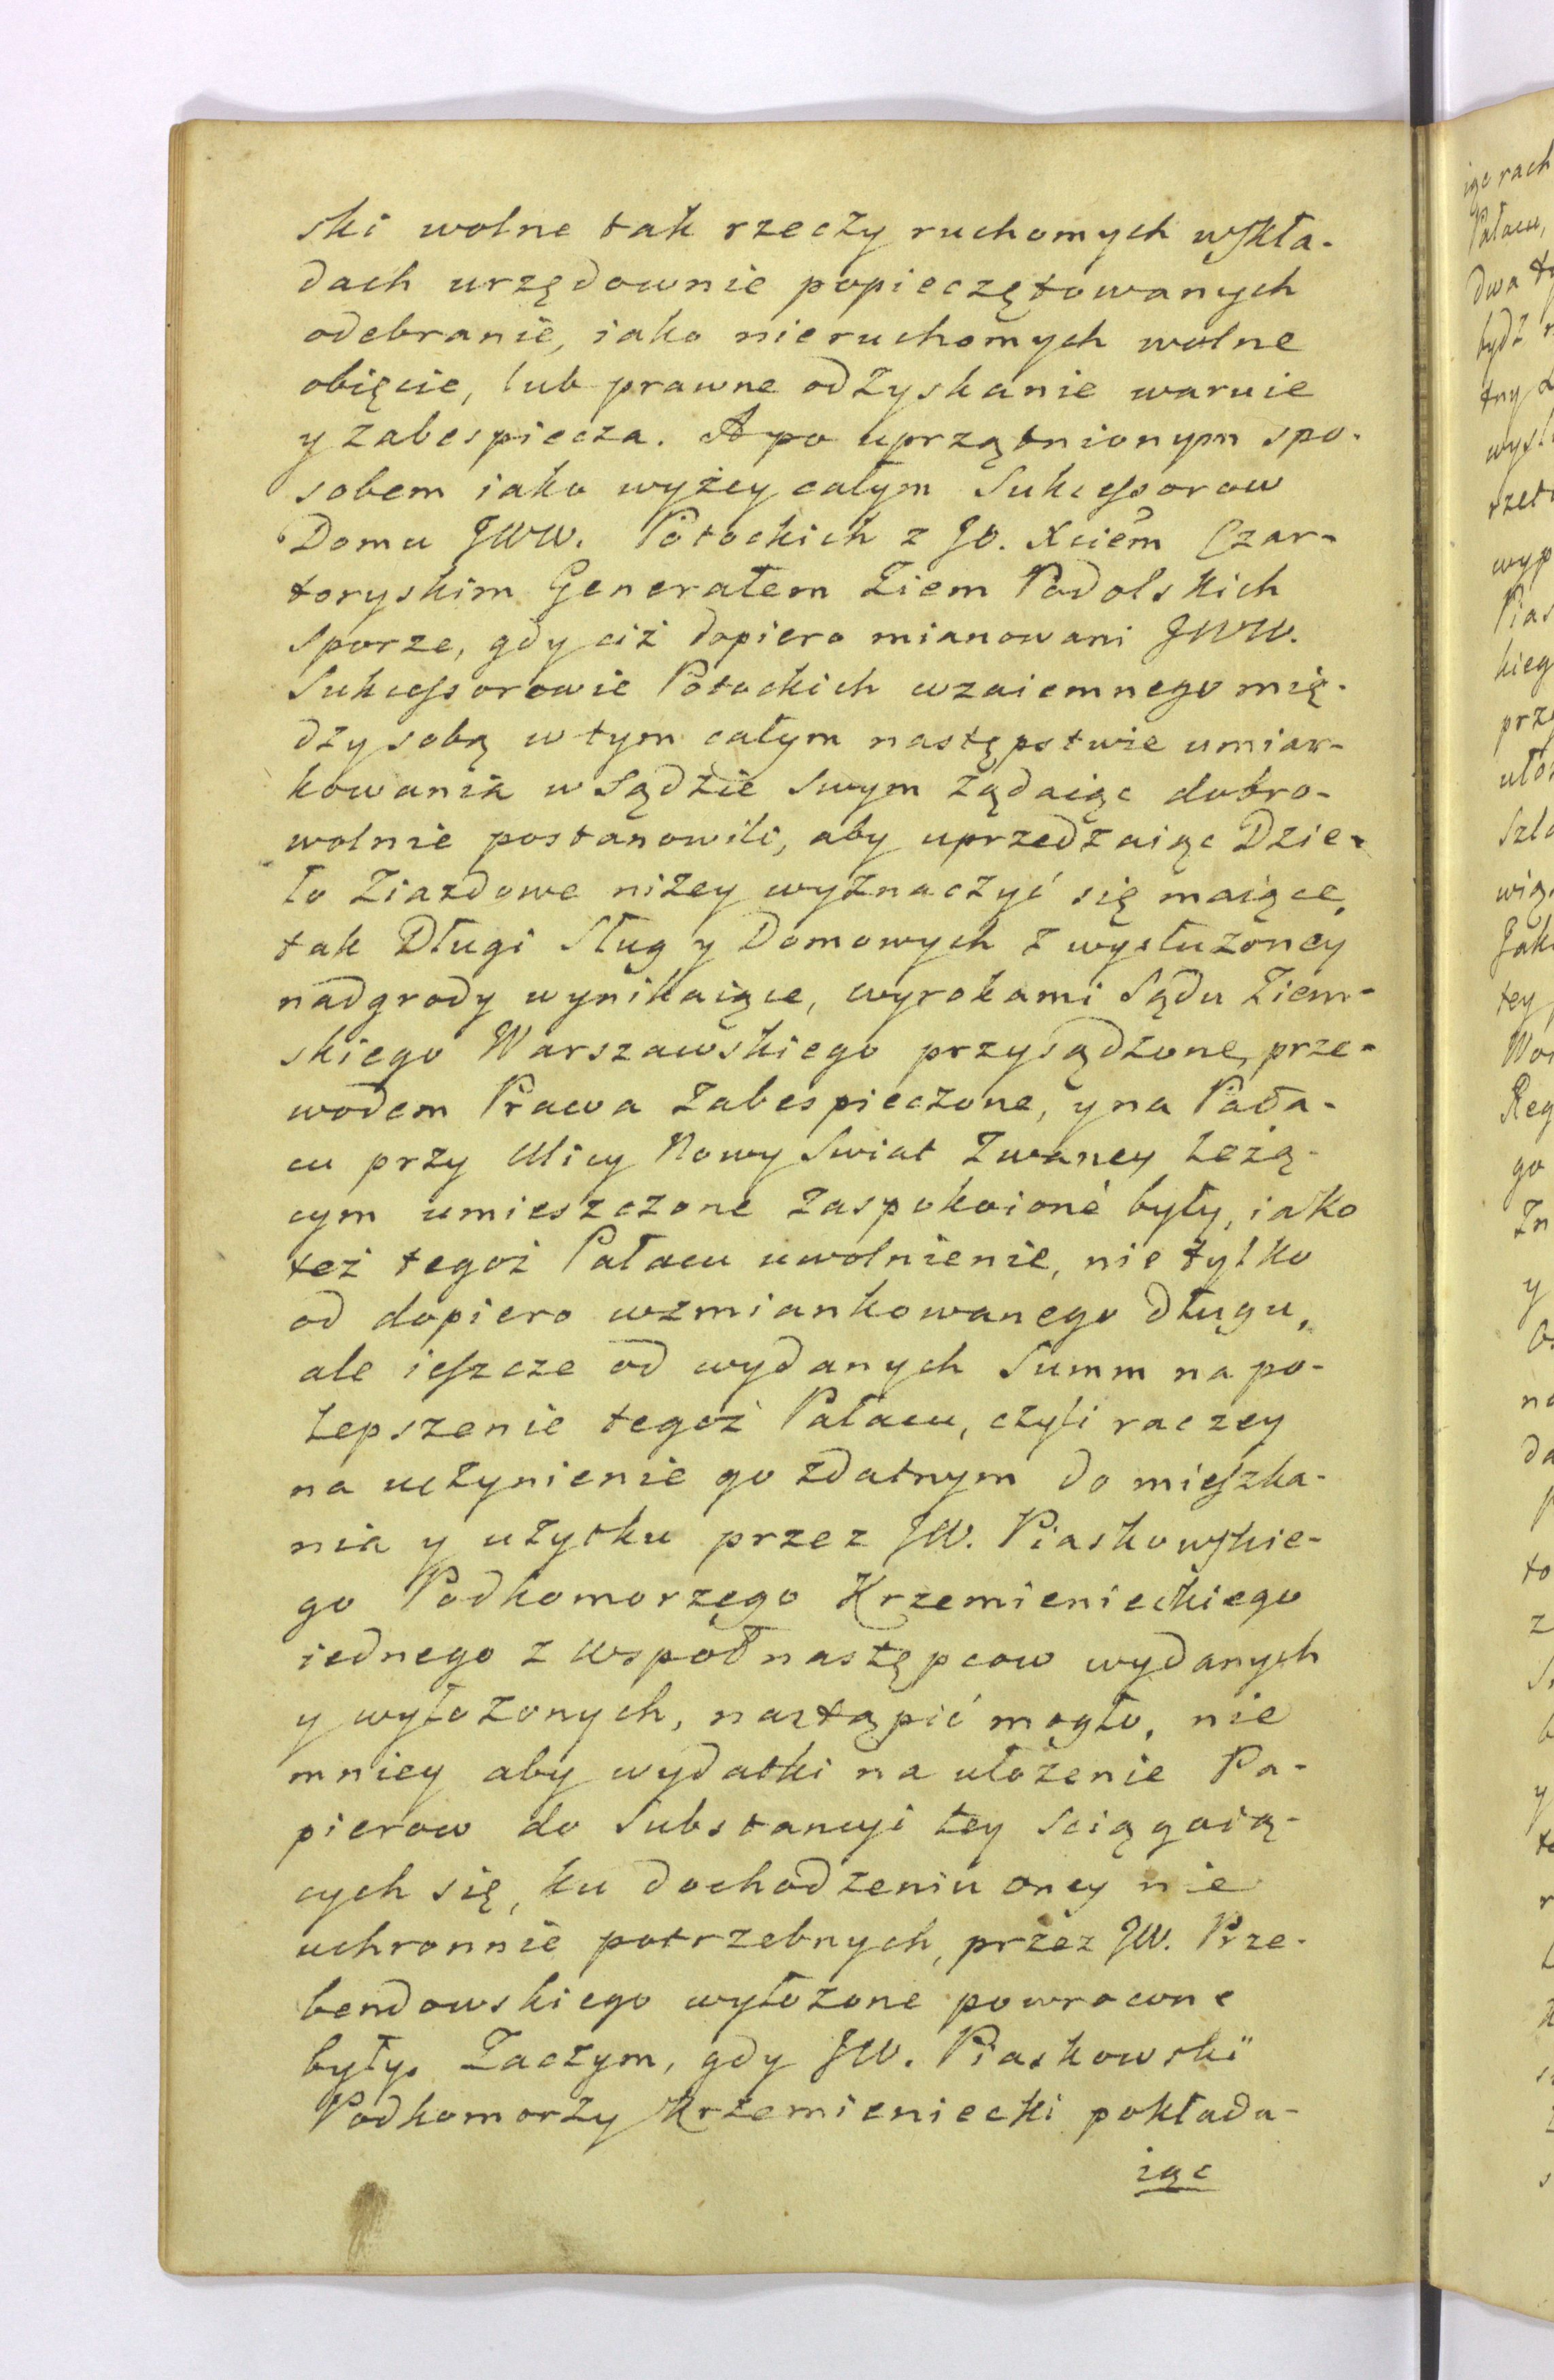 ski wolne tak rzeczy ruchomych wskła-
dach urzędownie popieczętowanych
odebranie, iako nieruchomych wolne
obięcie, lub prawne odzyskanie waruie
y zabespiecza. A po uprzątnionym spo-
sobem iako wyżey całym Sukcessorow
Domu JWW. Potockich z JO. Xciem Czar-
toryskim Generałem Ziem Podolskich
sporze, gdy ciż dopiero mianowani JWW.
Sukcessorowie Potockich wzaiemnego mię-
dzy sobą w tym całym następstwie umiar-
kowania w Sądzie Swym żądaiąc dobro-
wolnie postanowili, aby uprzedzaiąc Dzie-
ło Ziazdowe niżey wyznaczyć się maiące,
tak Długi Sług y Domowych z wysłużoney
nadgrody wynikaiące, wyrokami Sądu Ziem-
skiego Warszawskiego przysądzone, prze-
wodem Prawa zabespieczone, y na Pała-
cu przy Ulicy Nowy Swiat zwaney Leżą-
cym umieszczone zaspokoione były, iako
też tegoż Pałacu uwolnienie, nie tylko
od dopiero wzmiankowanego długu,
ale ieszcze od wydanych Summ na po-
Lepszenie tegoż Pałacu, czyli raczey
na uczynienie go zdatnym do mieszka-
nia y użytku przez JW. Piaskowskie-
go Podkomorzego Krzemienieckiego
iednego z Wspołnastępcow wydanych
y wyłożonych, nastąpić mogło, nie
mniey aby wydatki na ułożenie Pa-
pierow do Substancyi tey sciągaią-
cych się, ku dochodzeniu oney nie
uchronnie potrzebnych, przez JW. Prze-
bendowskiego wyłożone powrocone
były. Zaczym, gdy JW. Piaskowski
Podkomorzy Krzemieniecki pokłada-
iąc